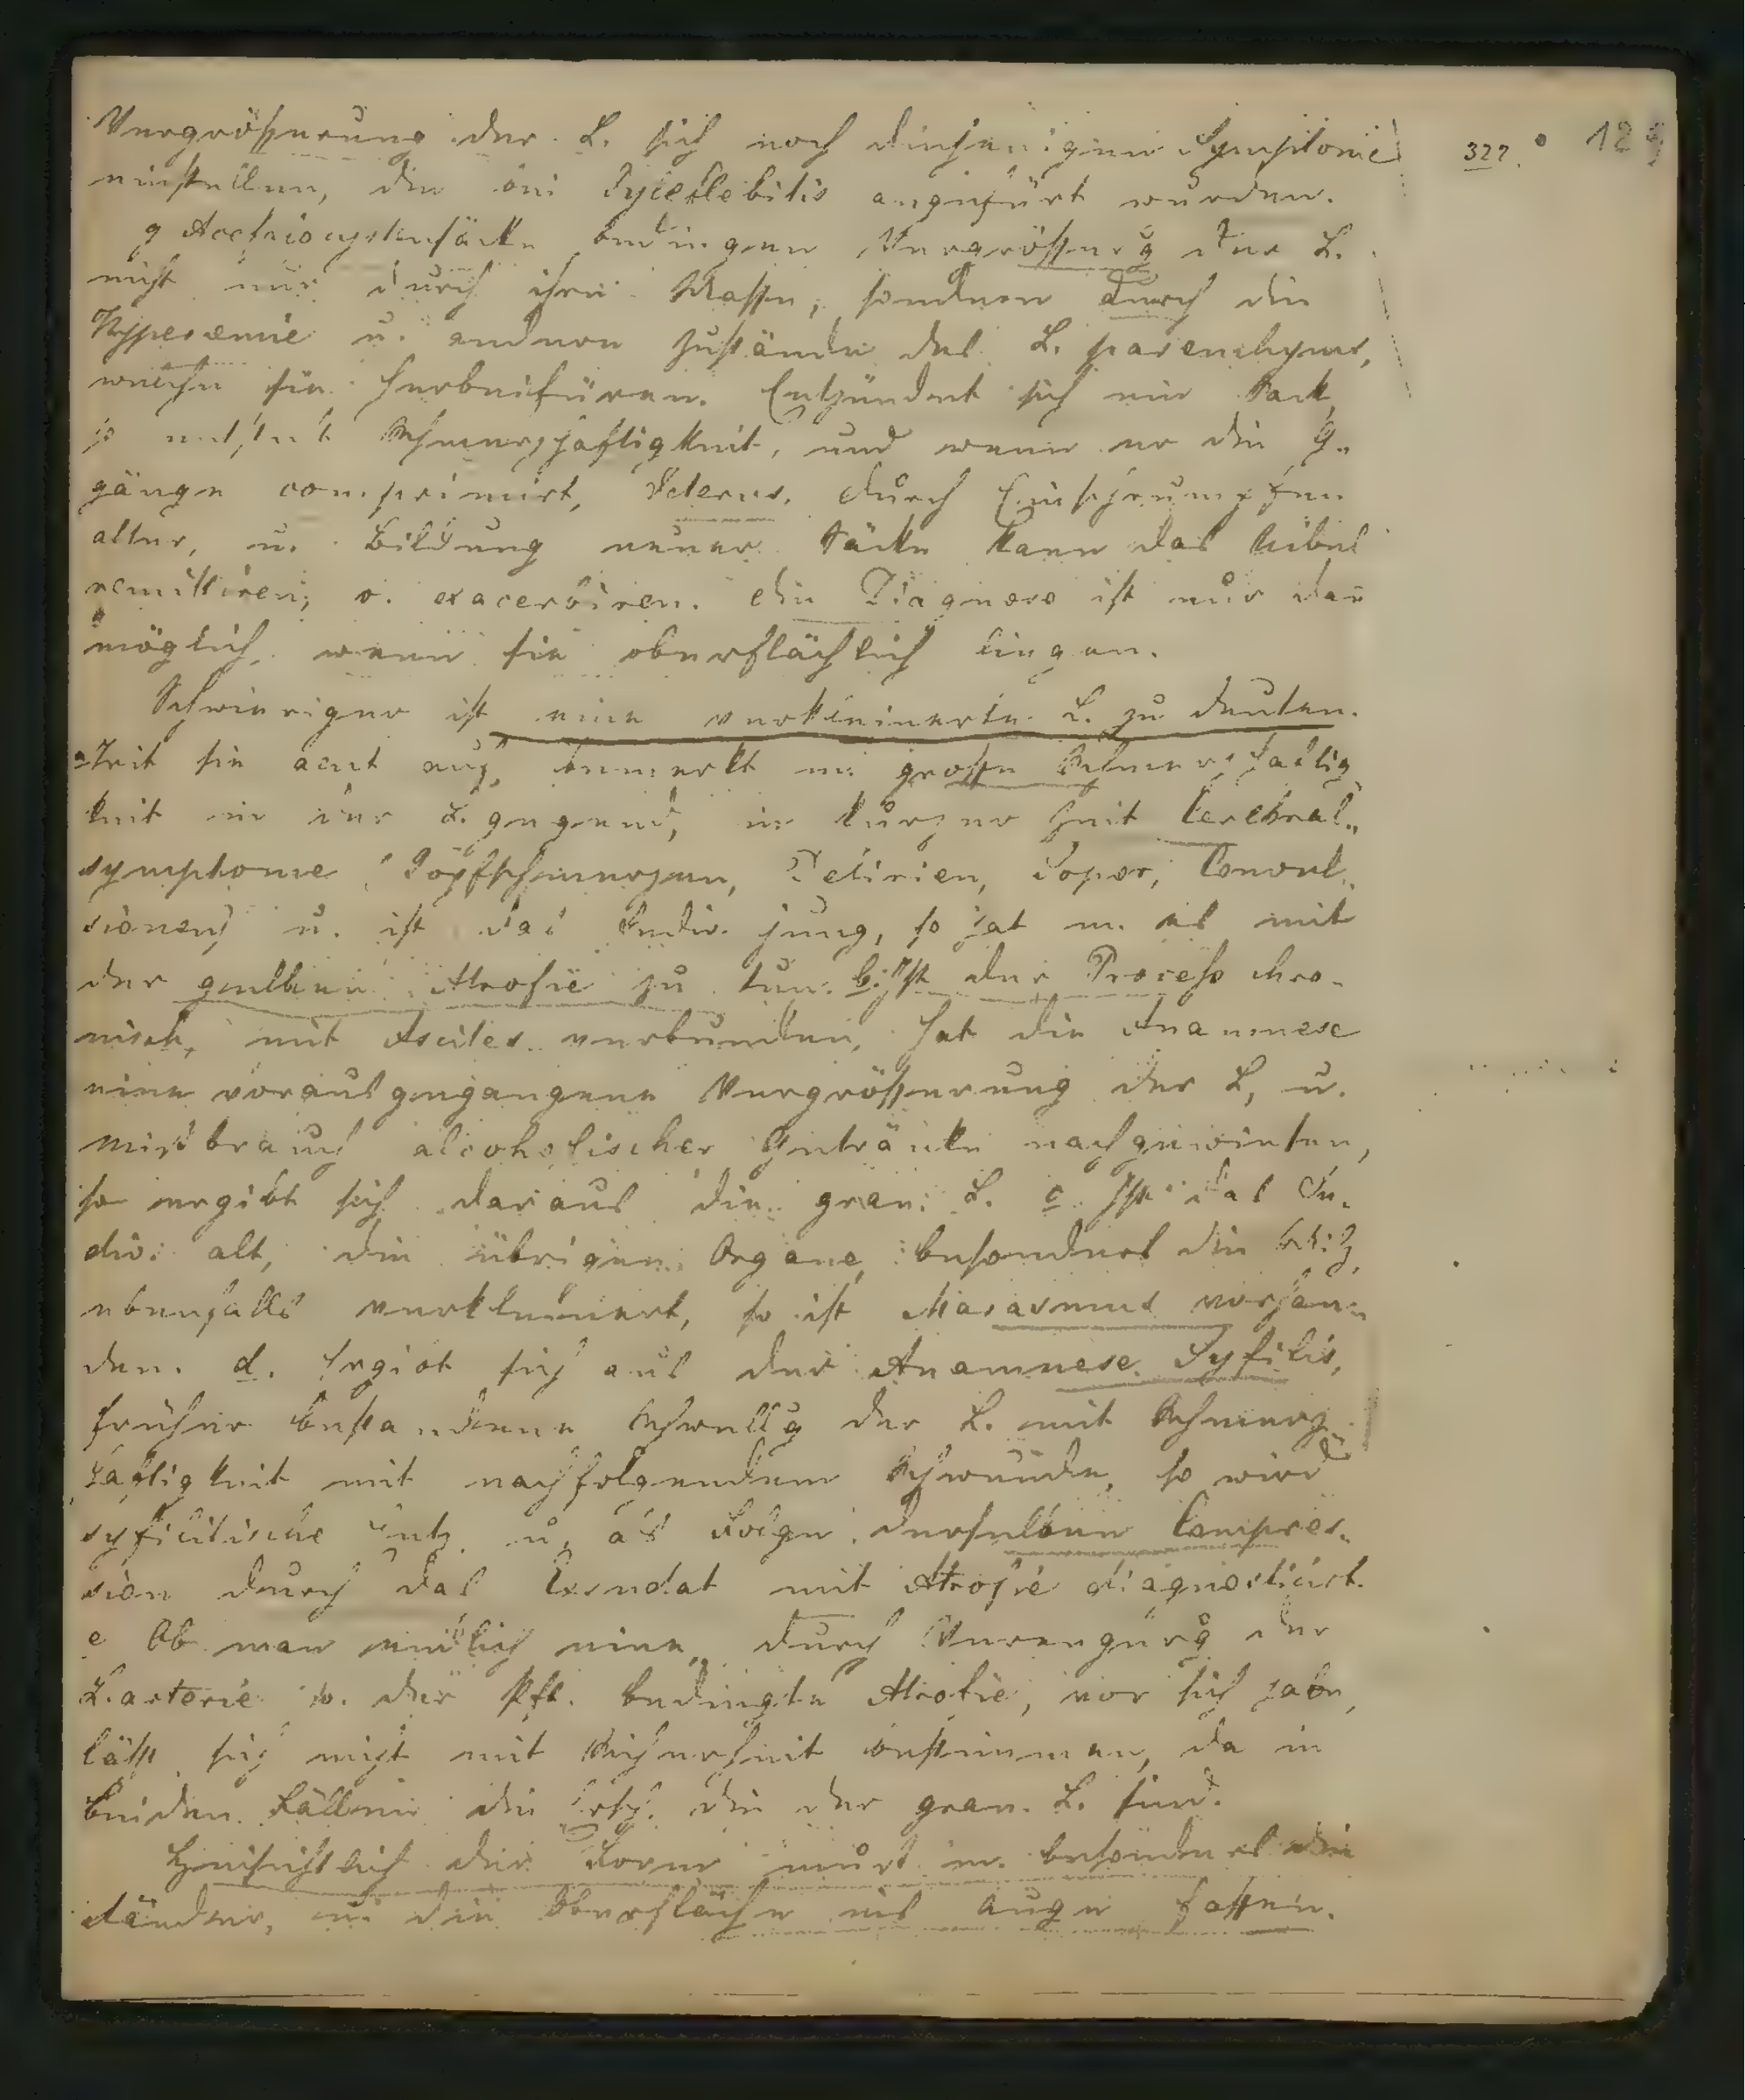 322. 129
Vergrößerung der L. sich noch diejenigen Symptome
einstellen, die bei Pyleflebitis angefürt wurden.
g Acefalocystensäcke bedingen Vergrößerūg der L.
nicht nur durch ihre Masse, sondern durch die
Hyperaemie u. andern Zustände des L. parenchyms,
welche sie herbeifüren. Entzündet sich ein Sack,
so entsteht Schmerzhaftigkeit, und wenn er die G.
gänge comprimirt, Icterus. Durch Einschrumpfen
alter, u. Bildung neuer Säcke kann das Uibel
remittiren, o. exacerbiren. Die Diagnose ist nur dan
möglich, wenn sie oberflächlich liegen.
Schwieriger ist eine verkleinerte L. zu deuten.
a Trit sie acut auf, bemerkt m. große Schmerzhaftig
keit in der L. gegend, in kurzer Zeit Cerebral
symptome (Kopfschmerzen, Delirien, Sopor, Convul
sionen) u. ist das Indiv. jung, so hat m. es mit
der gelben Atrofie zu tun. b. Ist der Proceß chro-
nisch, mit Ascites verbunden, hat die Anamnese
eine vorausgegangene Vergrößerung der L, u.
Mißbrauch alcoholischer Getränke nachgewiesen,
so ergibt sich daraus die gran. L. c Ist das In-
div. alt, die übrigen Organe, besonders die Milz,
ebenfalls verkleinert, so ist Marasmus vorhan-
den. d. Ergibt sich aus der Anamnese Syfilis,
früher bestandene Schwellūg der L. mit Schmerz
haftigkeit mit nachfolgendem Schwunde, so wird
syfilitische Entz. u. als Folge derselben Compres-
sion durch das Exsudat mit Atrofie diagnosticirt.
e Ob man endlich eine, durch Verengerūg der
L. arterie o. der Pft. bedingte Atrofie, vor sich habe,
läßt sich nicht mit Sicherheit bestimmen, da in
beiden Fällen die die der gran. L. sind.
Hinsichtlich der Form muß m. besonders die
Ränder, u. die Oberfläche ins Auge fassen.